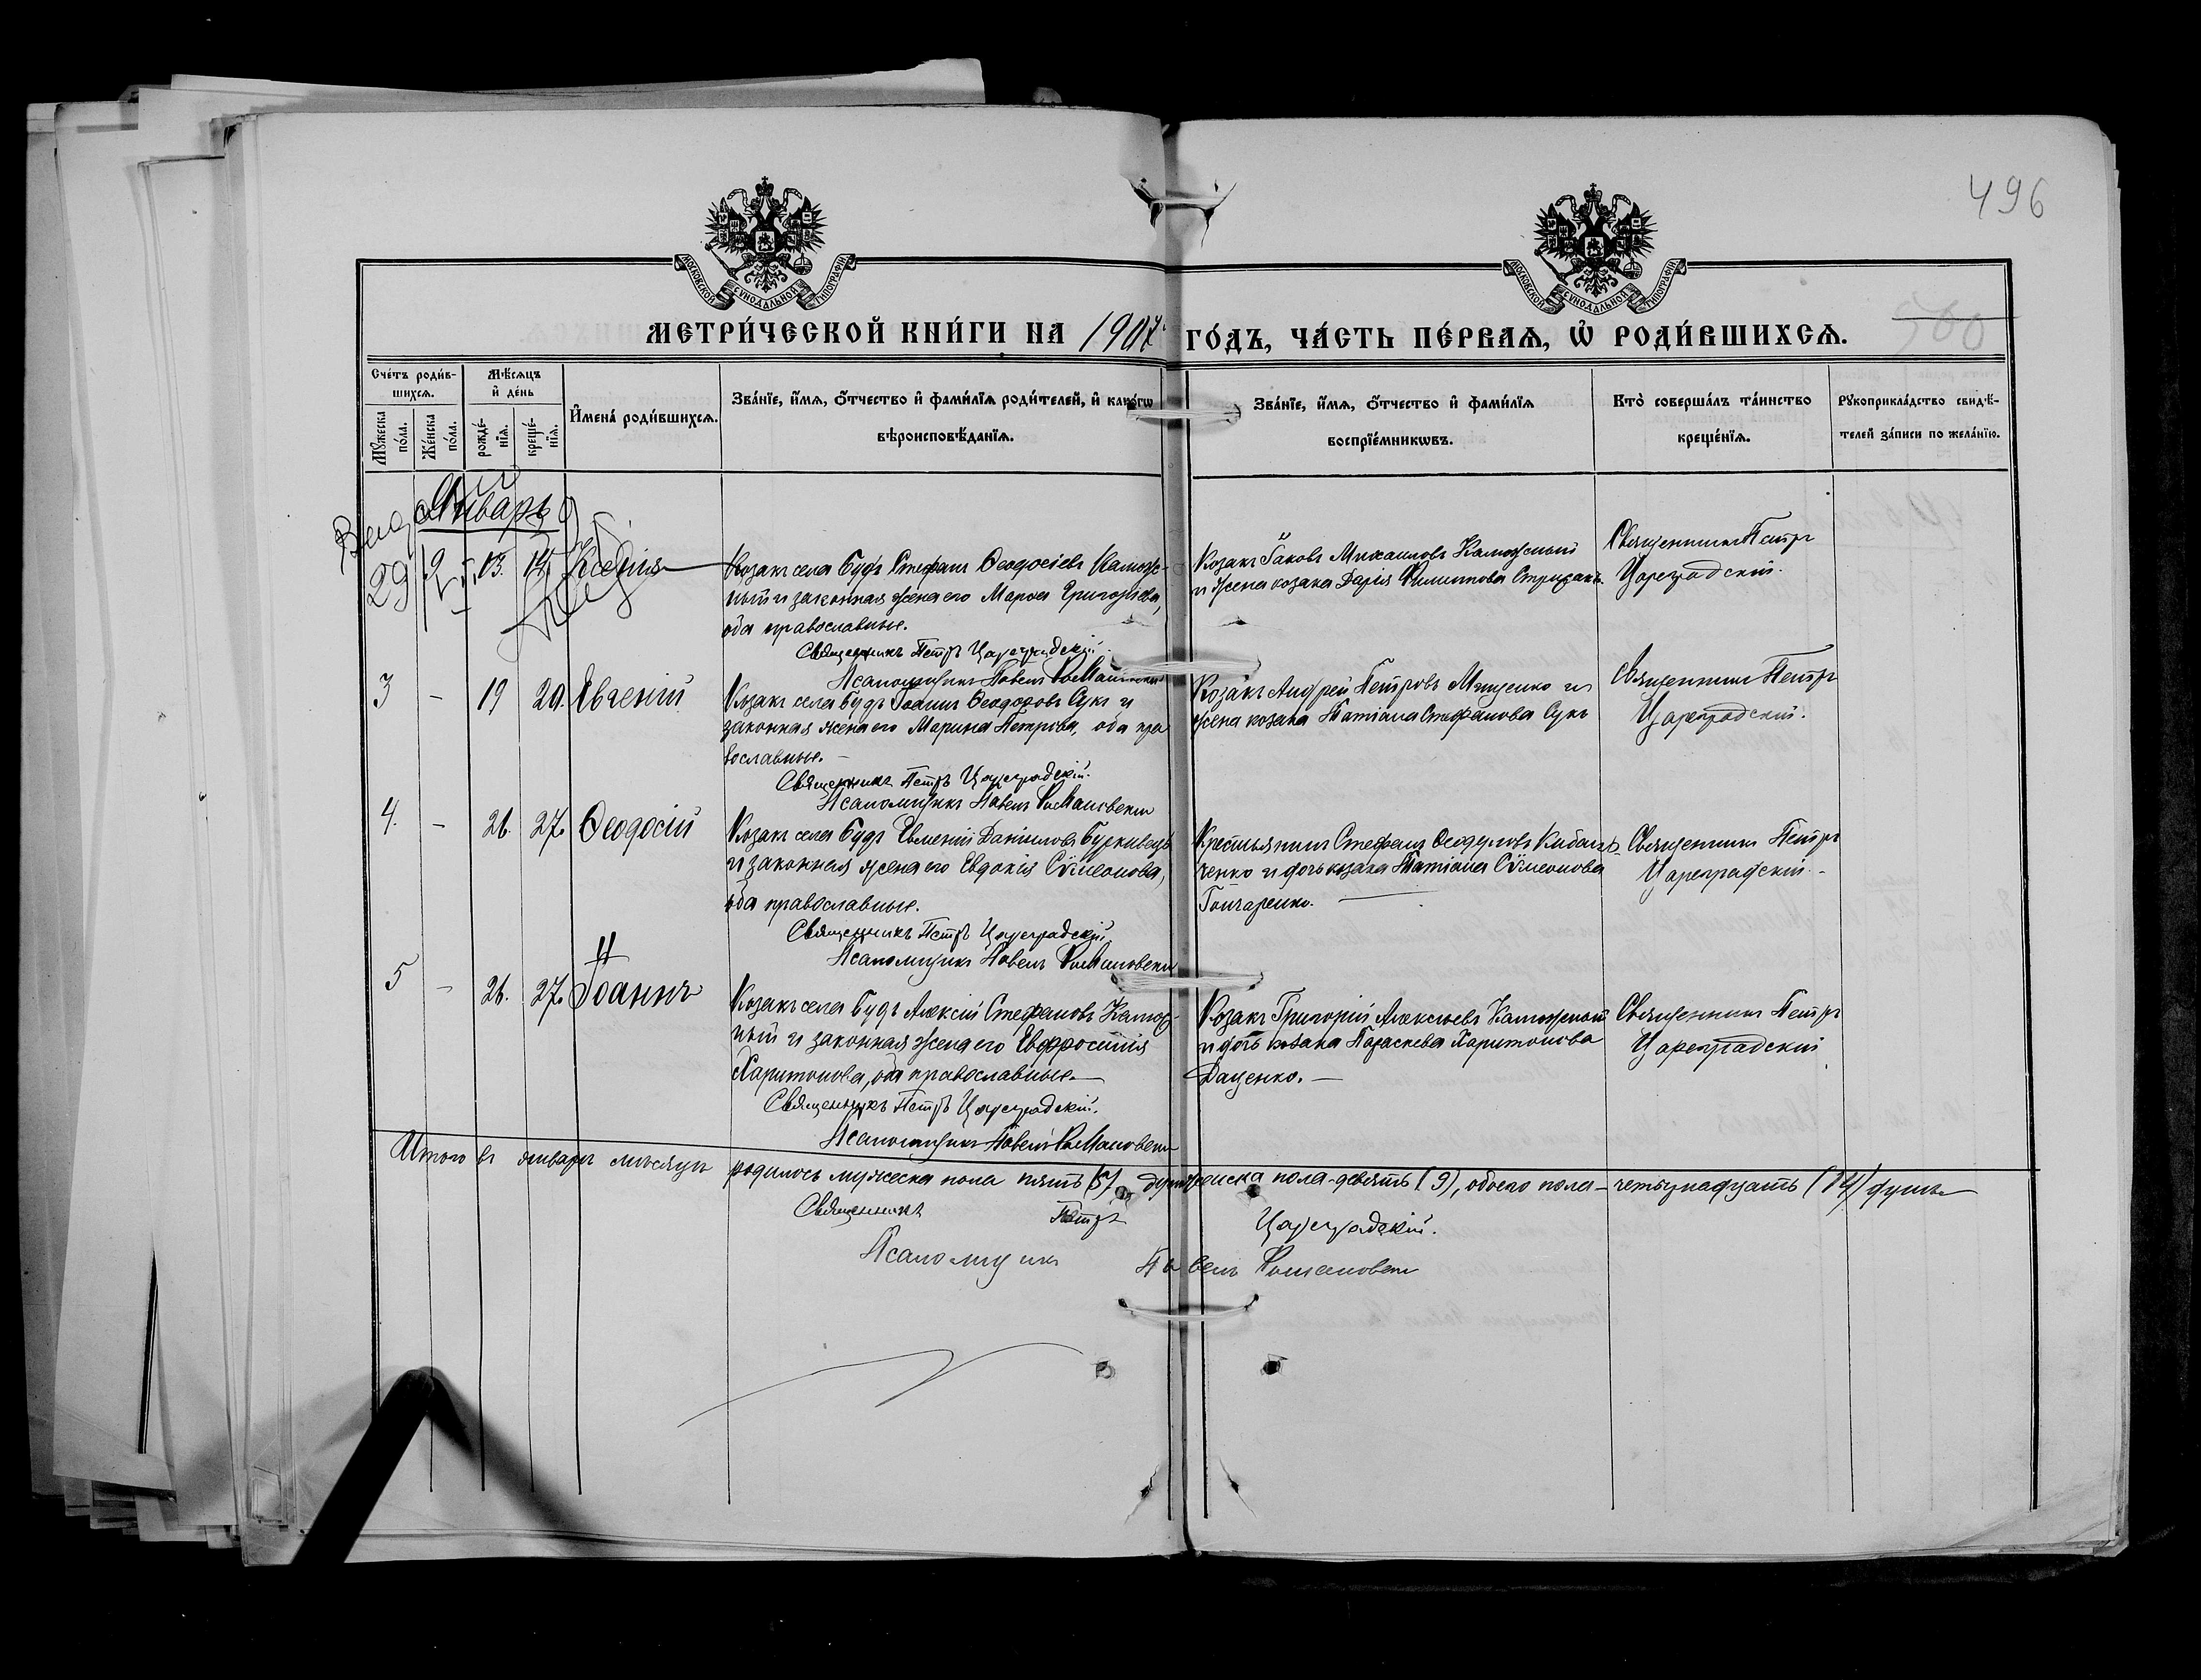 496
МОСКОВСКОЙ СѴНОДАЛЬНОЙ ТИПОГРАФІИ
МОСКОВСКОЙ СѴНОДАЛЬНОЙ ТИПОГРАФІИ
500
МЕТРИ́ЧЕСКОЙ КНИ́ГИ НА 1907 ГО́ДЪ, ЧА́СТЬ ПЕ́РВАѦ, Ѡ҆ РОДИ́ВШИХСѦ.
Сче́тъ роди́в-
шихсѧ.
Мꙋ́жеска по́ла.
Же́нска по́ла.
Мѣ́сѧцъ
и҆ де́нь
рожде́-
нїѧ.
креще́-
нїѧ.
И҆мена̀ роди́вшихсѧ.
Зва́нїе, и҆́мѧ, ѻ҆́тчество и҆ фами́лїѧ роди́телей, и҆ како́гѡ
вѣроисповѣ́данїѧ.
Зва́нїе, и҆́мѧ, ѻ҆́тчество и҆ фами́лїѧ
воспрїе́мникѡвъ.
Кто̀ соверша́лъ та́инство
креще́нїѧ.
Рꙋкоприкла́дство свидѣ́-
телей за́писи по жела́нїю.
Январь
29
9 13. 14. Ксенія
Козакъ села Будъ Стефанъ Ѳеодосіевъ Калюж-
ный и законная жена его Марѳа Григоріева,
оба православные.
Священникъ Петръ Цареградскій.
Псаломщикъ Павелъ
Козакъ Іаковъ Михаиловъ Калюжный
и жена козака Дарія Филиппова
Священникъ Петръ
Цареградскій.
3 – 19 20. Евгеній
Козакъ села Будъ Іоаннъ Ѳеодоровъ Сукъ и
законная жена его Марина Петрова, оба пра
вославные. –
Священникъ Петръ Цареградскій.
Псаломщикъ Павелъ
Козакъ Андрей Петровъ Мищенко и
жена козака Татіана Стефанова Сукъ
Священникъ Петръ
Цареградскій.
4. – 26. 27. Ѳеодосій
Козакъ села Будъ Евменій Даніиловъ
и законная жена его Евдокія Сѵмеонова,
оба православные.
Священникъ Петръ Цареградскій
Псаломщикъ Павелъ
Крестьянинъ Стефанъ
ченко и дочь козака Татіана Сѵмеонова
Гончаренко.
Священникъ Петръ
Цареградскій. –
5 – 26. 27. Іоаннъ
Козакъ села Будъ Алексій Стефановъ Калюж-
ный и законная жена его Евфросинія
Харитонова, оба православные. –
Священникъ Петръ Цареградскій.
Псаломщикъ Павелъ
Козакъ Григорій Алексѣевъ Калюжный
и дочь козака Параскева Харитонова
Даценко. –
Священникъ Петръ
Цареградскій
Итого въ январѣ мѣсяцѣ родилось мужеска пола пять (5), женска пола – девять (9), обоего пола – четырнадцать (14) душъ
Священникъ Петръ Цареградскій.
Псаломщикъ Павелъ